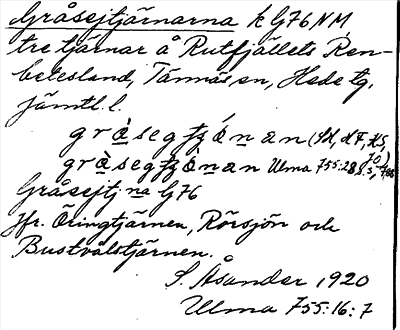 Gråsejtjärnarna k G76NM
tre tjärnar å Rutfjällets Ren-
betesland, Tännäs sn, Hede tg,
Jämtl. l.
gràsegtʒónan
gràsegtʒónan Ulma 755:28
Gråsejtj:na G76
Jfr. Öringtjärnen, Rörsjön och
Bustvålstjärnen.
S. Åsander 1920
Ulma 755:16:7